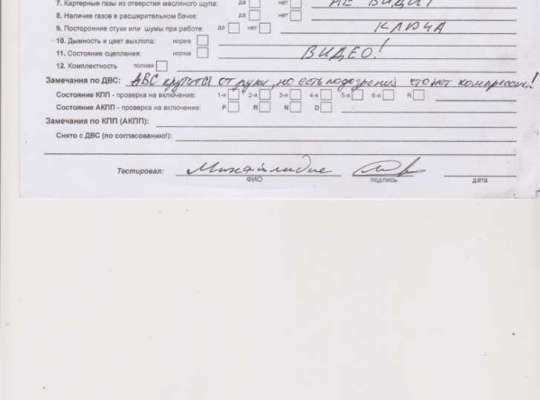 7. Картерные газы из отверстия масляного щупа: да нет НЕ ВИДИТ
8. Наличие газов в расширительном бачке: да нет
9. Посторонние стуки или шумы при работе: да нет КЛЮЧА
10. Дымность и цвет выхлопа: норма
11. Состояние сцепления: норма ВИДЕО!
12. Комплектность полная
Замечания по ДВС: ДВС крутится от руки, но есть подозрения что нет компрессии!
Состояние КПП - проверка на включение: 1-я 2-я 3-я 4-я 5-я 6-я R
Состояние АКПП - проверка на включение: P R N D
Замечания по КПП (АКПП):
Снято с ДВС (по согласованию!):
Тестировал:
ФИО подпись дата